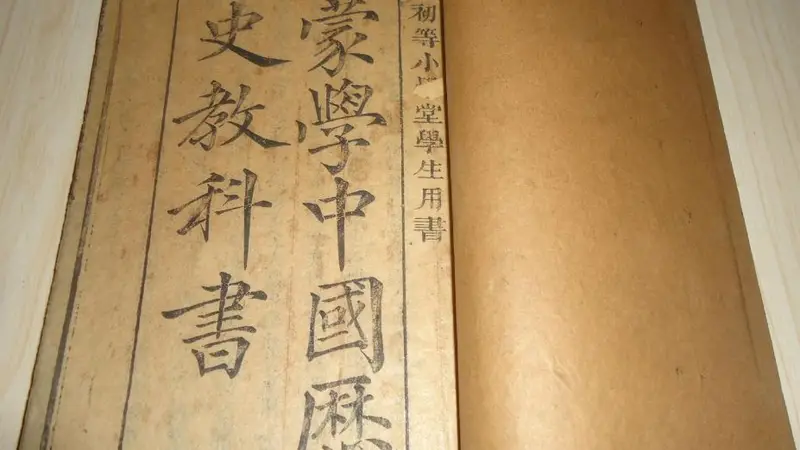 初等小學堂學生用書
蒙學中國歷
史教科書